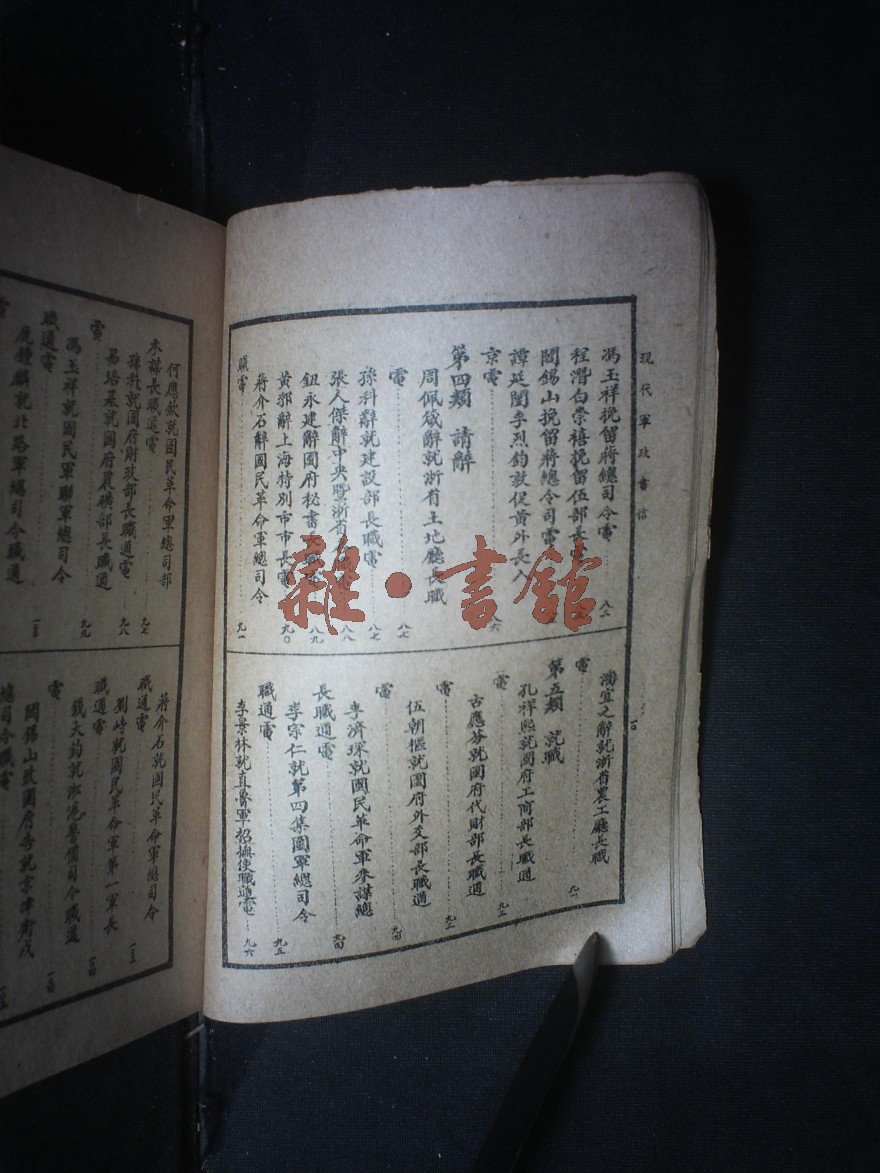 現代軍政書信
馮玉祥挽留蔣總司令電
八二
程潛白崇禧挽留伍部長電
閻錫山挽留蔣總令司電
譚延闓李烈鈞敦促黃外長入
京電
八六
第四類 請辭
周佩箴辭就浙省土地廳長職
電
八七
孫科辭就建設部長職電
八七
張人傑辭中央暨浙省
八八
鈕永建辭國府秘書長
八九
黃郛辭上海特別市市長電
九〇
蔣介石辭國民革命軍總司令
職電
九一
潘宜之辭就浙省農工廳長職
電
九一
第五類 就職
孔祥熙就國府工商部長職通
電
古應芬就國府代財部長職通
電
伍朝樞就國府外交部長職通
電
九四
李濟琛就國民革命軍參謀總
長職通電
九四
李宗仁就第四集團軍總司令
職通電
九五
李景林就直魯軍招撫使職通電
九六
何應欽就國民革命軍總司部
參謀長職通電
九七
孫科就國府財政部長職通電
九八
易培基就國府農礦部長職通
電
九九
馮玉祥就國民軍聯軍總司令
職通電
鹿鍾麟就北路軍總司令職通
電
蔣介石就國民革命軍總司令
職通電
劉峙就國民革命軍第一軍長
職通電
錢大鈞就淞滬警備司令職通
電
閻錫山致國府告就京津衛戍
總司令職電
雜·書館